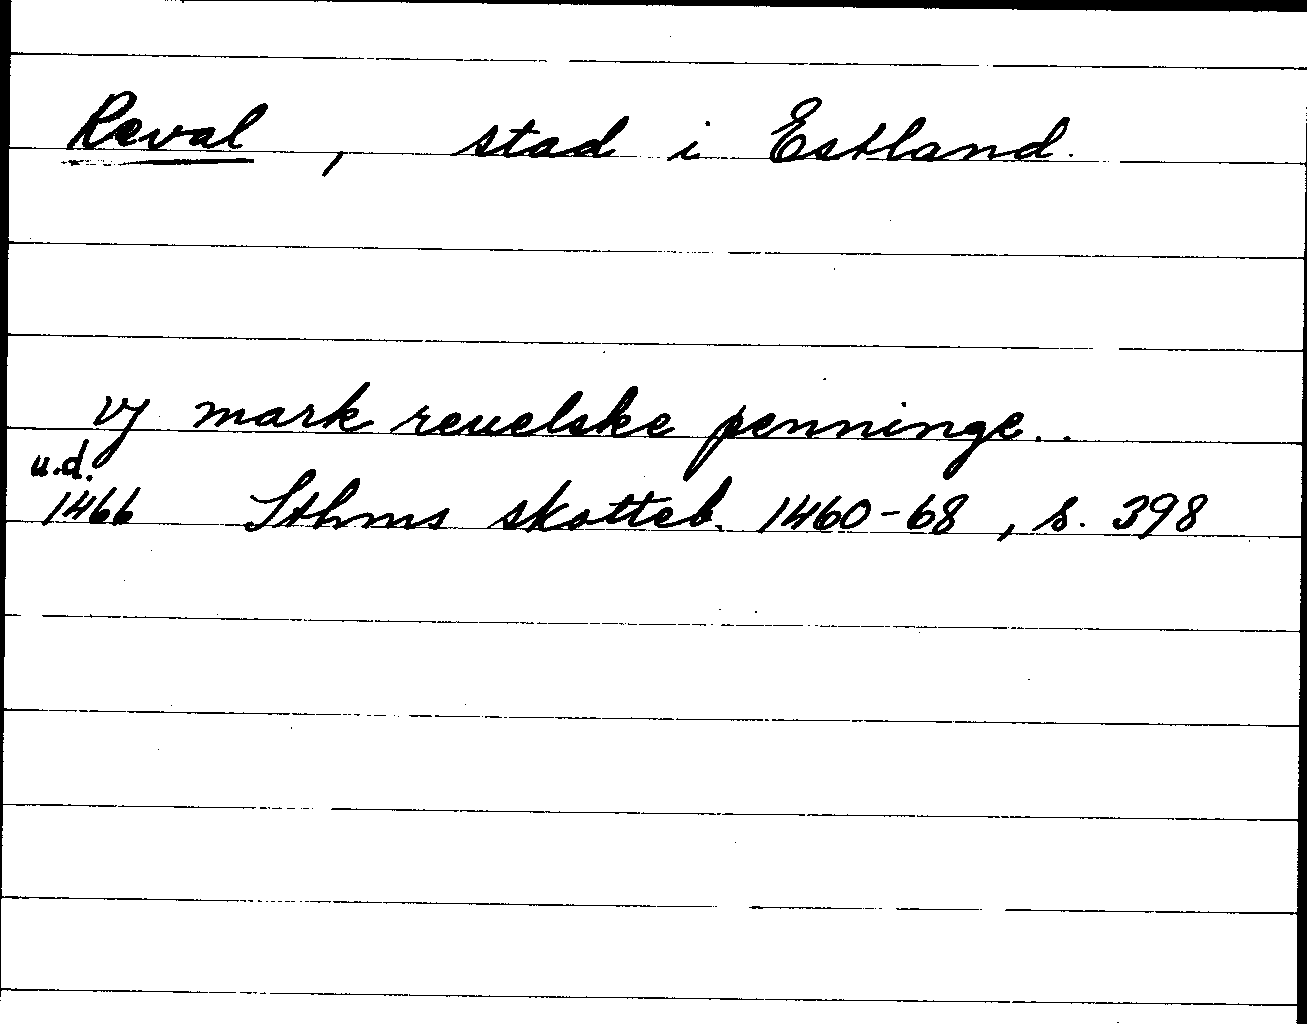 Reval, stad i Estland.
vj mark reuelske penninge..
u.d.
1466 Sthms skotteb. 1460-68, s. 398